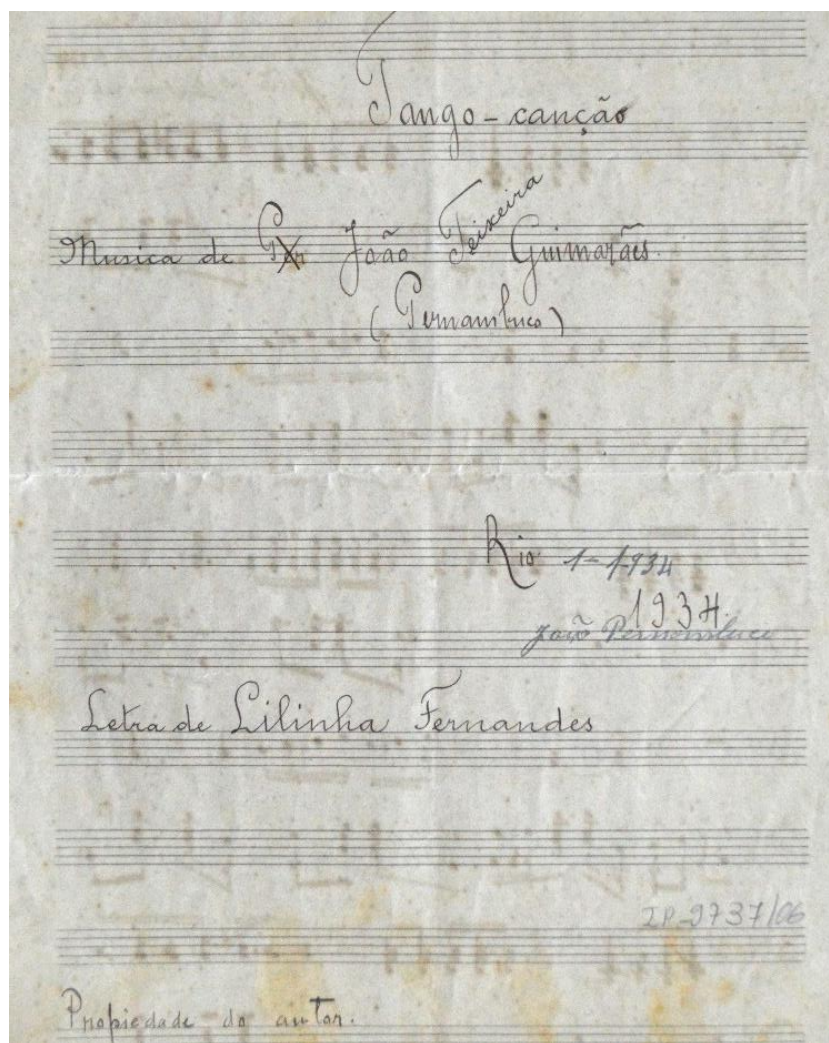 Tango-canção
Musica de João Teixeira Guimarães.
(Pernambuco)
Rio 1-1-934
1934.
João Pernambuco
Letra de Lilinha Fernandes
IP-9737/06
Propiedade do autor.